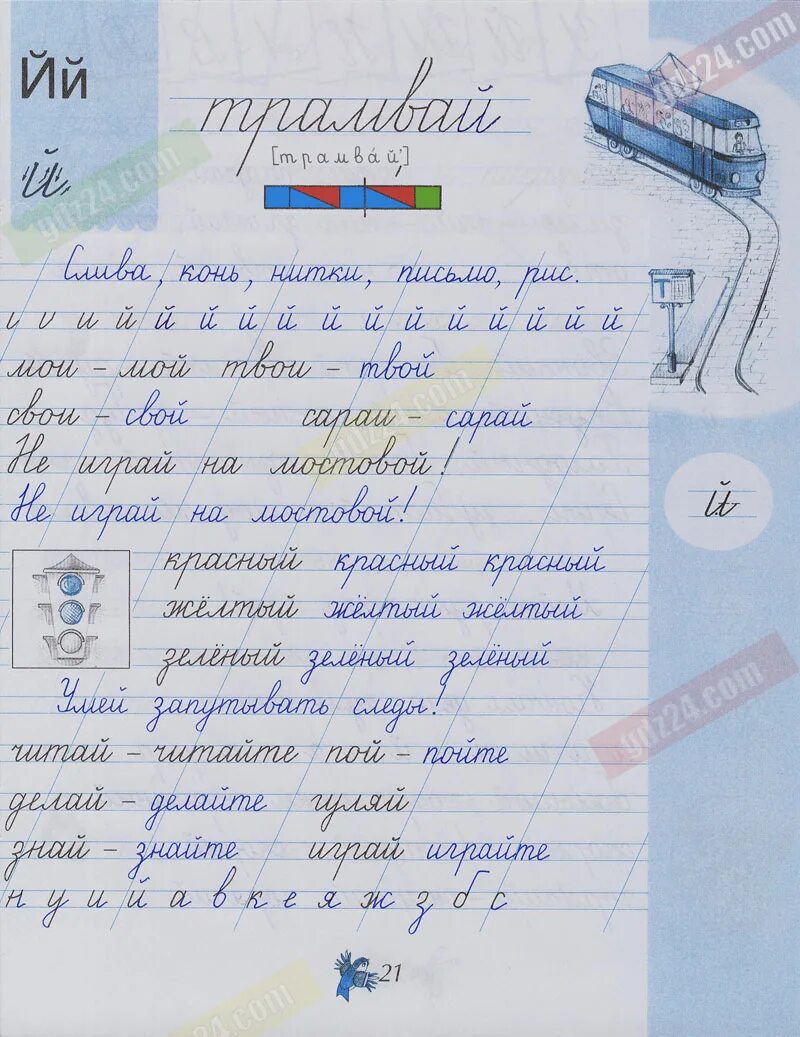 Йй
й
трамвай
[трамва́й']
Слива, конь, нитки, письмо, рис.
и и и й й й й й й й й й й й й й
мои – мой твои – твой
свои – свой сараи – сарай
Не играй на мостовой!
Не играй на мостовой!
й
красный красный красный
жёлтый жёлтый жёлтый
зелёный зелёный зелёный
Умей запутывать следы!
читай – читайте пой – пойте
делай – делайте гуляй
знай – знайте играй играйте
н у и й а в к е я ж з б с
21
Т
gdz24.com
gdz24.com
gdz24.com
gdz24.com
gdz24.com